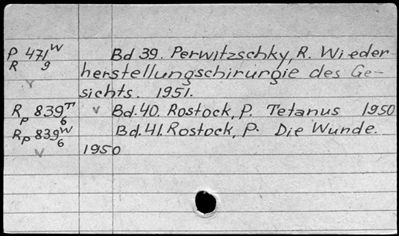 P 471 W Bd 39. Perwitzschky, R. Wieder
R 9 herstellungschirurgie des Ge-
v sichts. 1951.
R 839 T v Bd. 40. Rostock, P. Tetanus 1950
P 6
Rp 839 W Bd. 41. Rostock, P. Die Wunde.
6
v 1950